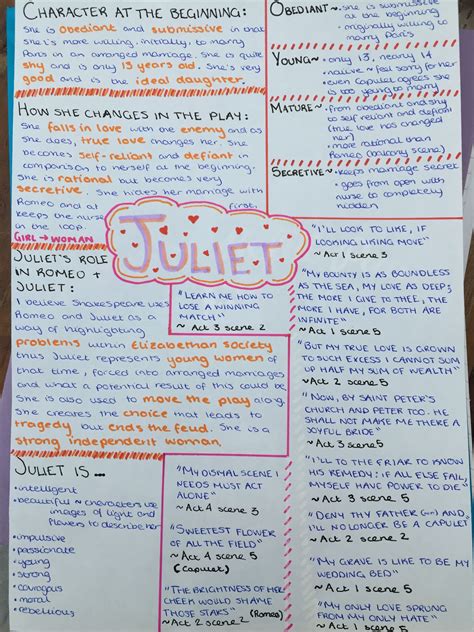 CHARACTER AT THE BEGINNING:
She is obedient and submissive in that
she's more willing, initially, to marry
Paris in an arranged marriage. She is quite
shy and is only 13 years old. She's very
good and is the ideal daughter.
HOW SHE CHANGES IN THE PLAY:
She falls in love with the enemy and as
she does, true love changes her. She
becomes self-reliant and defiant in
comparison to herself at the beginning.
She is rational but becomes very
secretive. She hides her marriage with
Romeo and at first,
keeps the nurse
in the loop.
GIRL → WOMAN
JULIET'S ROLE
IN ROMEO +
JULIET:
I believe Shakespeare uses
Romeo and Juliet as a
way of highlighting
problems within Elizabethan society
thus Juliet represents young women of
that time, forced into arranged marriages
and what a potential result of this could be.
She is also used to move the play along.
She creates the choice that leads to
tragedy but ends the feud. She is a
strong independent woman.
JULIET IS...
•intelligent
•beautiful ~ characters use
images of light and
flowers to describe her
•impulsive
•passionate
•young
•strong
•couragous
•moral
•rebellious
JULIET
OBEDIENT~ • she is submissive
at the beginning
• marginally willing to
marry Paris
YOUNG~ • only 13, nearly 14
• naive - feel sorry for her
• even capulet agrees she
is too young to marry
MATURE~ • from obedient and shy
to self reliant and defiant
(true love has changed
her)
• more rational than
Romeo (balcony scene)
SECRETIVE~ • keeps marriage secret
• goes from open with
nurse to completely
hidden
"I'LL LOOK TO LIKE, IF
LOOKING LIKING MOVE"
~ Act 1 scene 3
"MY BOUNTY IS AS BOUNDLESS
AS THE SEA, MY LOVE AS DEEP;
THE MORE I GIVE TO THEE, THE
MORE I HAVE, FOR BOTH ARE
INFINITE"
~ Act 1 scene 5
"BUT MY TRUE LOVE IS GROWN
TO SUCH EXCESS I CANNOT SUM
UP HALF MY SUM OF WEALTH"
~Act 2 scene 6
"NOW, BY SAINT PETER'S
CHURCH AND PETER TOO. HE
SHALL NOT MAKE ME THERE A
JOYFUL BRIDE"
~ Act 3 scene 5
"I'LL TO THE FRIAR TO KNOW
HIS REMEDY; IF ALL ELSE FAIL,
MYSELF HAVE POWER TO DIE"
~ Act 3 scene 5
"DENY THY FATHER (...) AND,
I'LL NO LONGER BE A CAPULET"
~ Act 2 scene 2
"MY GRAVE IS LIKE TO BE MY
WEDDING BED"
~ Act 1 scene 5
"MY ONLY LOVE SPRUNG
FROM MY ONLY HATE"
~ Act 1 scene 5
"LEARN ME HOW TO
LOSE A WINNING
MATCH"
~ Act 3 scene 2
"MY DISMAL SCENE I
NEEDS MUST ACT
ALONE"
~ Act 4 scene 3
"SWEETEST FLOWER
OF ALL THE FIELD"
~ Act 4 scene 5
(Capulet)
"THE BRIGHTNESS OF HER
CHEEK WOULD SHAME
THOSE STARS" (Romeo)
~ Act 2 scene 2